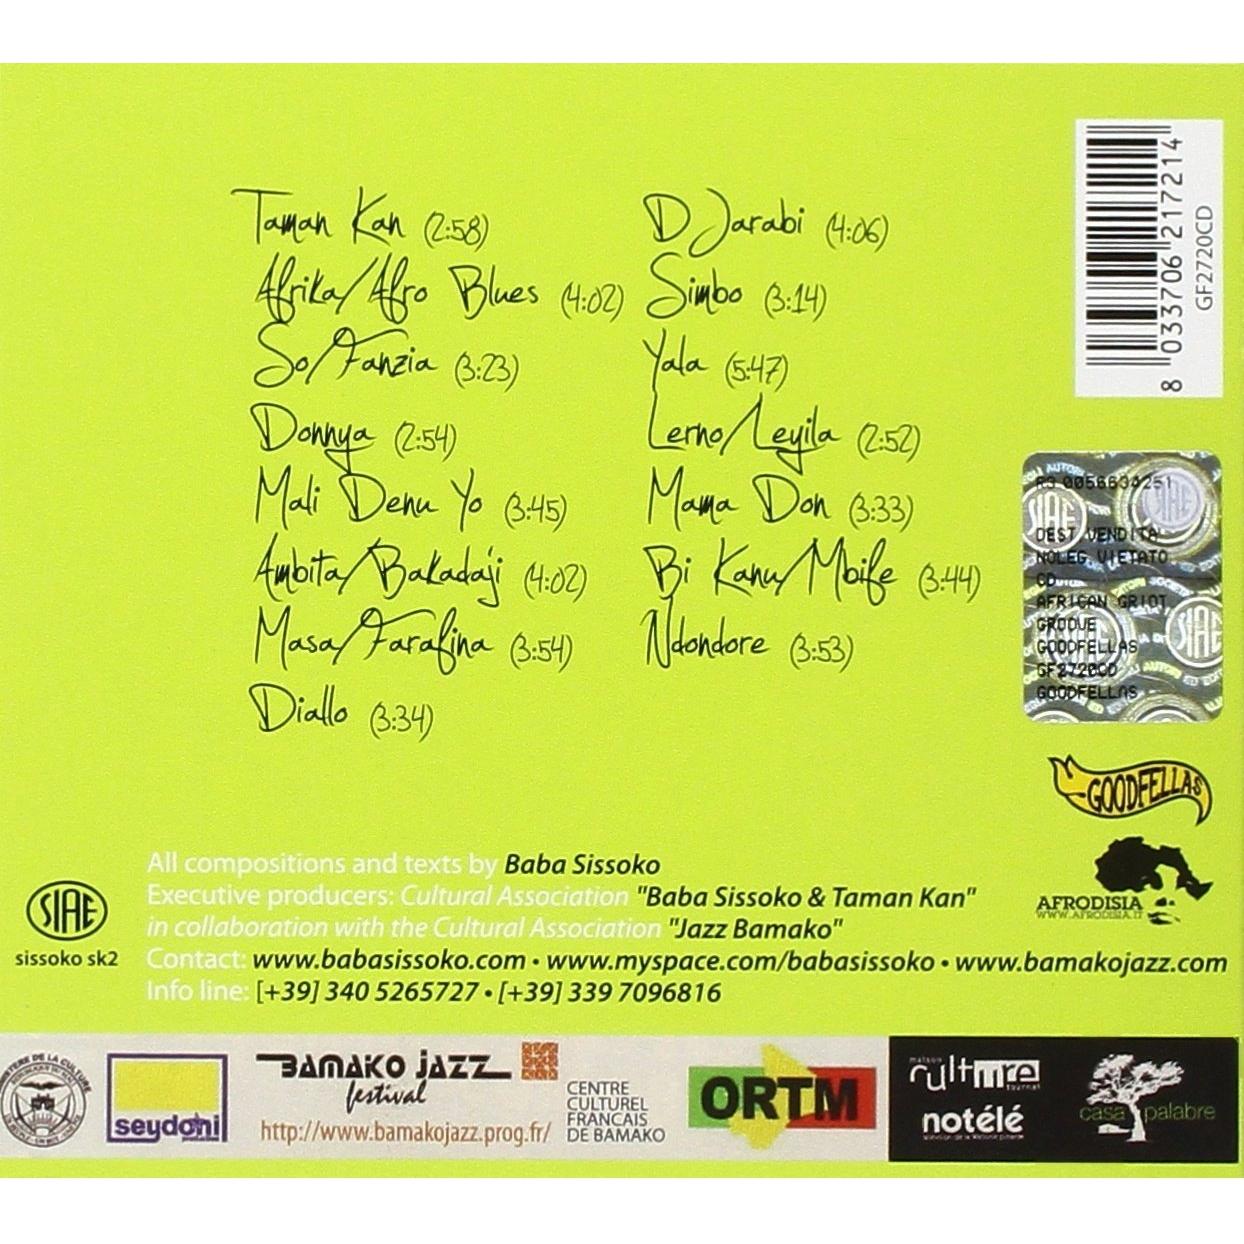 Taman Kan (2:58)
Afrika/Afro Blues (4:02)
So/Fanzia (3:23)
Donnya (2:54)
Mali Denu Yo (3:45)
Ambita/Bakadaji (4:02)
Masa/Farafina (3:54)
Diallo (3:34)
DJarabi (4:06)
Simbo (3:14)
Yala (5:47)
Lerno/Leyila (2:52)
Mama Don (3:33)
Bi Kanu/Mbife (3:44)
Ndondore (3:53)
8 033706 217214
GF2720CD
DEST.VENDITA
NOLEG.VIETATO
CD
AFRICAN GRIOT
GROOVE
GOODFELLAS
GF2720CD
GOODFELLAS
GOODFELLAS
AFRODISIA
WWW.AFRODISIA.IT
All compositions and texts by Baba Sissoko
Executive producers: Cultural Association "Baba Sissoko & Taman Kan"
in collaboration with the Cultural Association "Jazz Bamako"
Contact: www.babasissoko.com • www.myspace.com/babasissoko • www.bamakojazz.com
Info line: [+39] 340 5265727 • [+39] 339 7096816
SIAE
sissoko sk2
seydoni
BAMAKO JAZZ
festival
http://www.bamakojazz.prog.fr/
CENTRE
CULTUREL
FRANCAIS
DE BAMAKO
ORTM
maison
culture
tournai
notélé
casa palabre